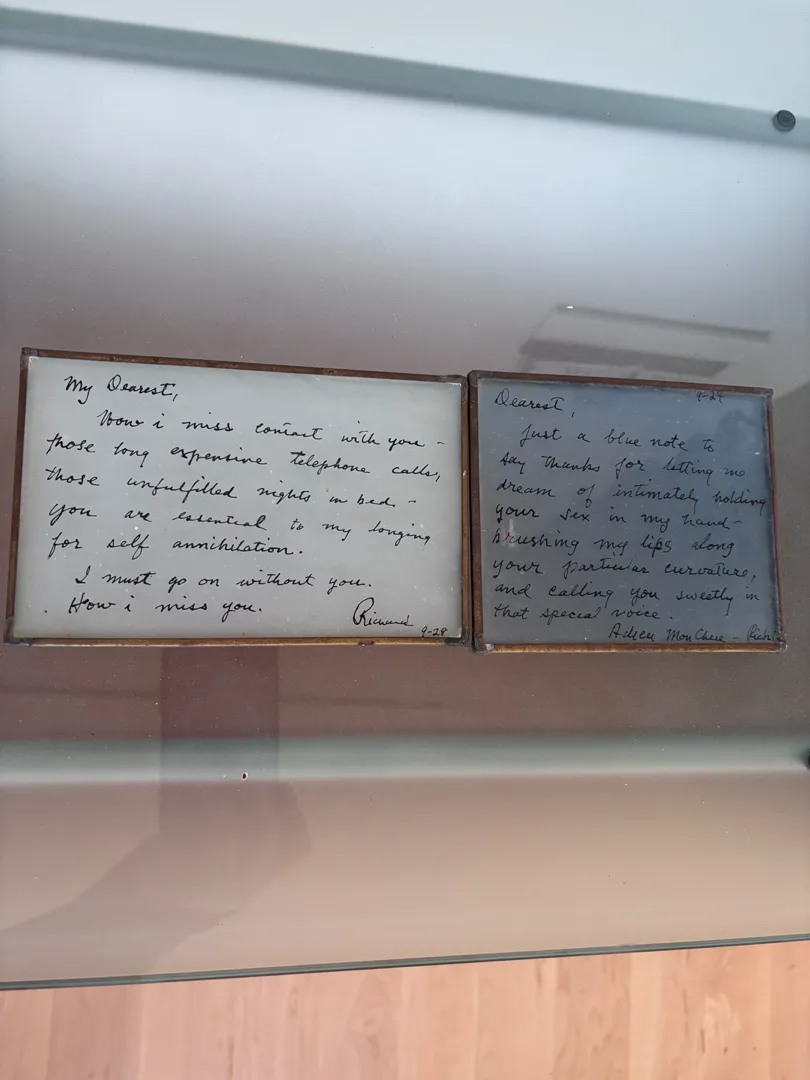 My Dearest,
How i miss contact with you -
those long expensive telephone calls,
those unfulfilled nights in bed. -
you are essential to my longing
for self annihilation.
I must go on without you.
How i miss you.
Richard
9-29
9-24
Dearest,
Just a blue note to
say thanks for letting me
dream of intimately holding
your sex in my hand -
brushing my lips along
your particular curvature,
and calling you sweetly in
that special voice.
Adieu Mon Chere - Rich